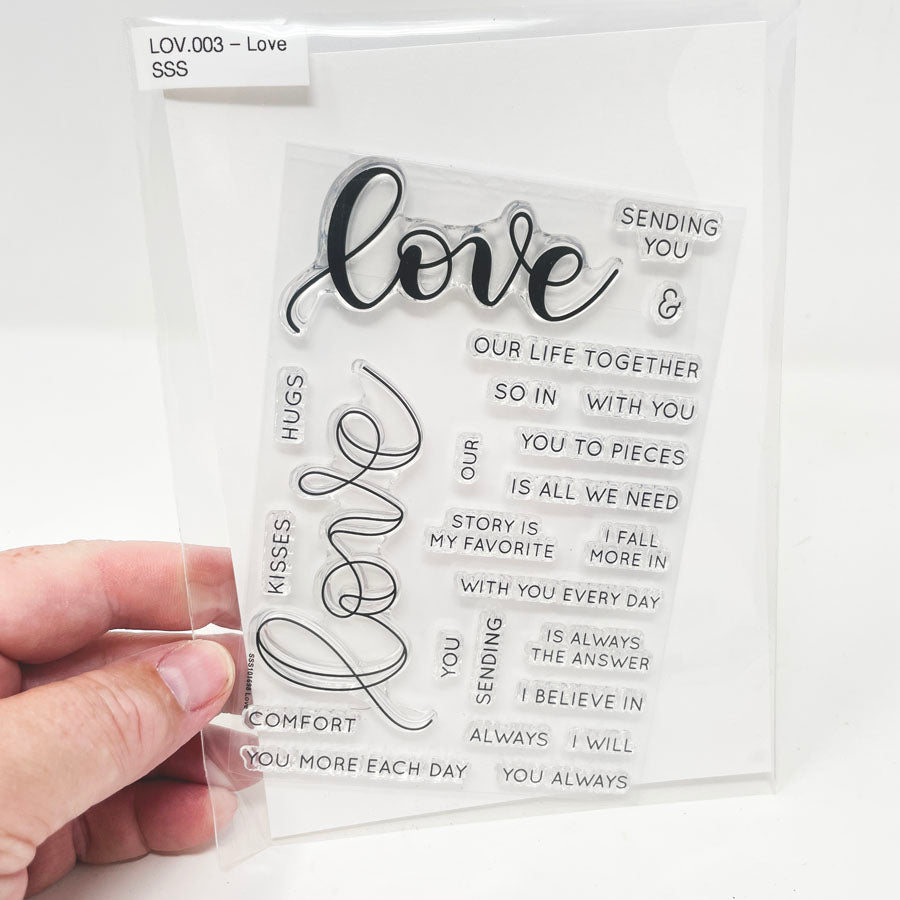 LOV.003 – Love
SSS
love
SENDING
YOU
&
OUR LIFE TOGETHER
SO IN
WITH YOU
HUGS
love
OUR
YOU TO PIECES
IS ALL WE NEED
STORY IS
MY FAVORITE
I FALL
MORE IN
KISSES
WITH YOU EVERY DAY
YOU
SENDING
IS ALWAYS
THE ANSWER
I BELIEVE IN
COMFORT
ALWAYS
I WILL
YOU MORE EACH DAY
YOU ALWAYS